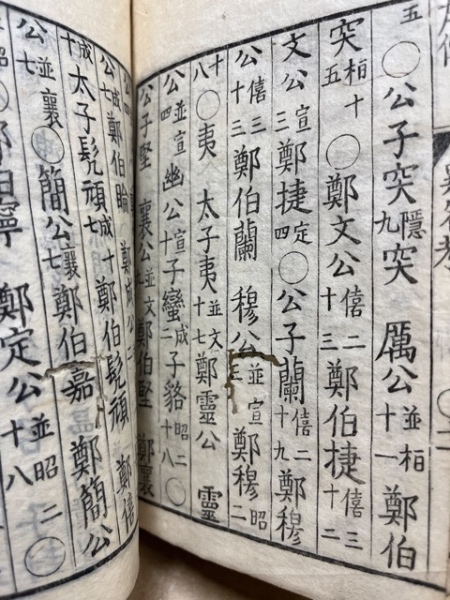 五〇公子突隱九突 厲公並桓十一鄭伯
突桓十五〇鄭文公僖二十三鄭伯捷僖三十二
文公宣三鄭捷定四〇公子蘭僖二十九鄭穆
公僖三十三鄭伯蘭 穆公並宣三鄭穆昭二
十八〇夷 太子夷並文十七鄭靈公 靈
公並宣 幽公宣十子蠻成二子貉昭二十八〇
公子堅 襄公並文 鄭伯堅 鄭襄
鄭伯睔 鄭成公
太子髡頑成十鄭伯髡頑 鄭僖
公並襄七〇簡公襄 鄭伯嘉 鄭簡公
〇鄭伯寧 鄭定公並昭二十八